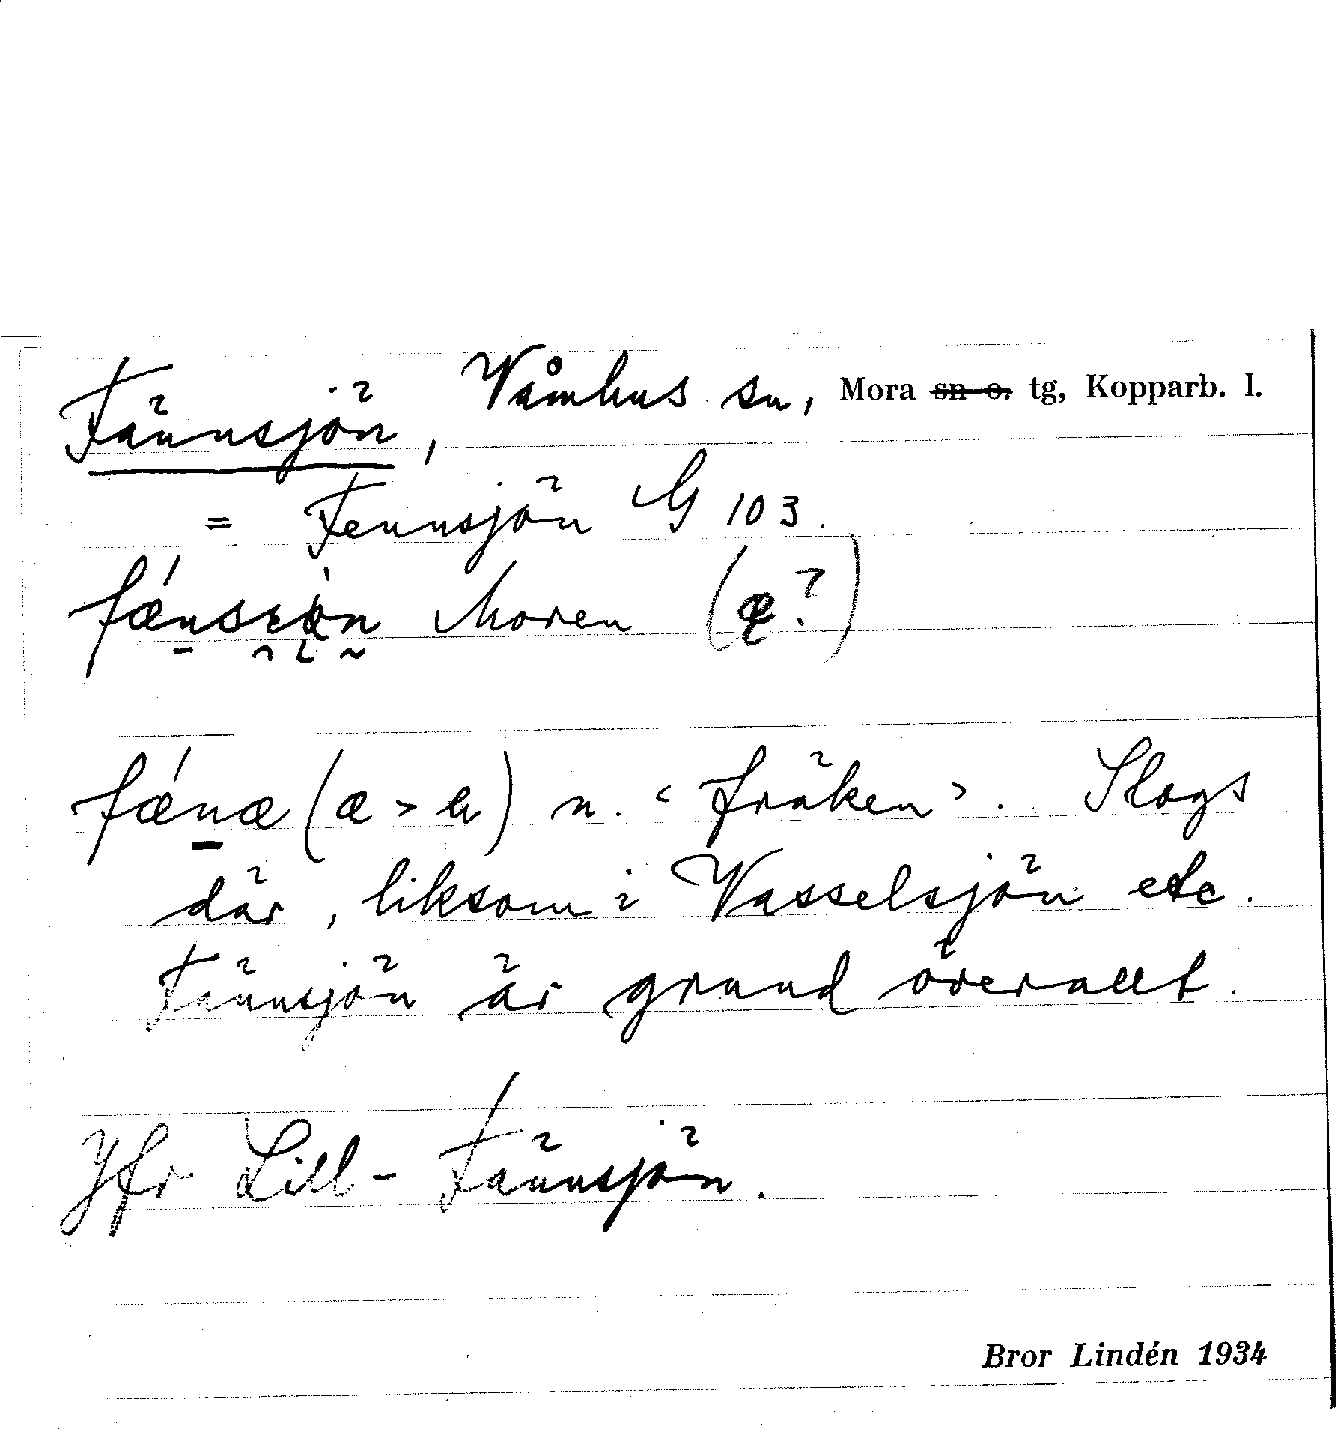 Fännsjön, Våmhus sn, Mora sn o. tg, Kopparb. l.
= Fennsjön G 103.
Moren (æ?)
fǽnæ (æ > a) n. ‹fräken›. Slogs
där, liksom i Vasselsjön etc.
Fännsjön är grund överallt.
Jfr Lill-Fännsjön.
Bror Lindén 1934